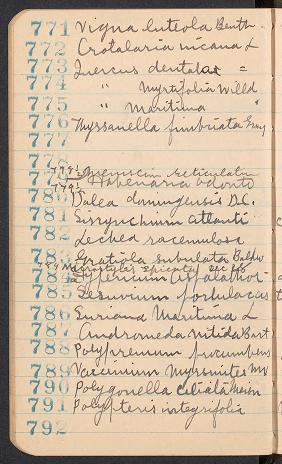 771 Vigna luteola Benth
772 Crotalaria incana L
773 Quercus dentata =
774 " Myrtifolia Willd
775 " Maritima "
776 Thyrsanella fimbriata Gray
777
778
778½ reticulatu
779 Habenaria odonto
779½
780 Dalea domingensis D.C.
781 Sisyrynchium atlanti
782 Lechea racemulosa
783 Gratiola subulata Baldw
783½ Microstylis spicata see 68
784 Hypericum aspalathoi
785 Sesuvium portulacast
786 Suriana Maritima L
787 Andromeda nitida Bart
788 Polypremum procumbens
789 Vaccinium Myrsinites Mx
790 Polygonella ciliata Meisn
791 Polypteris integrifolia
792